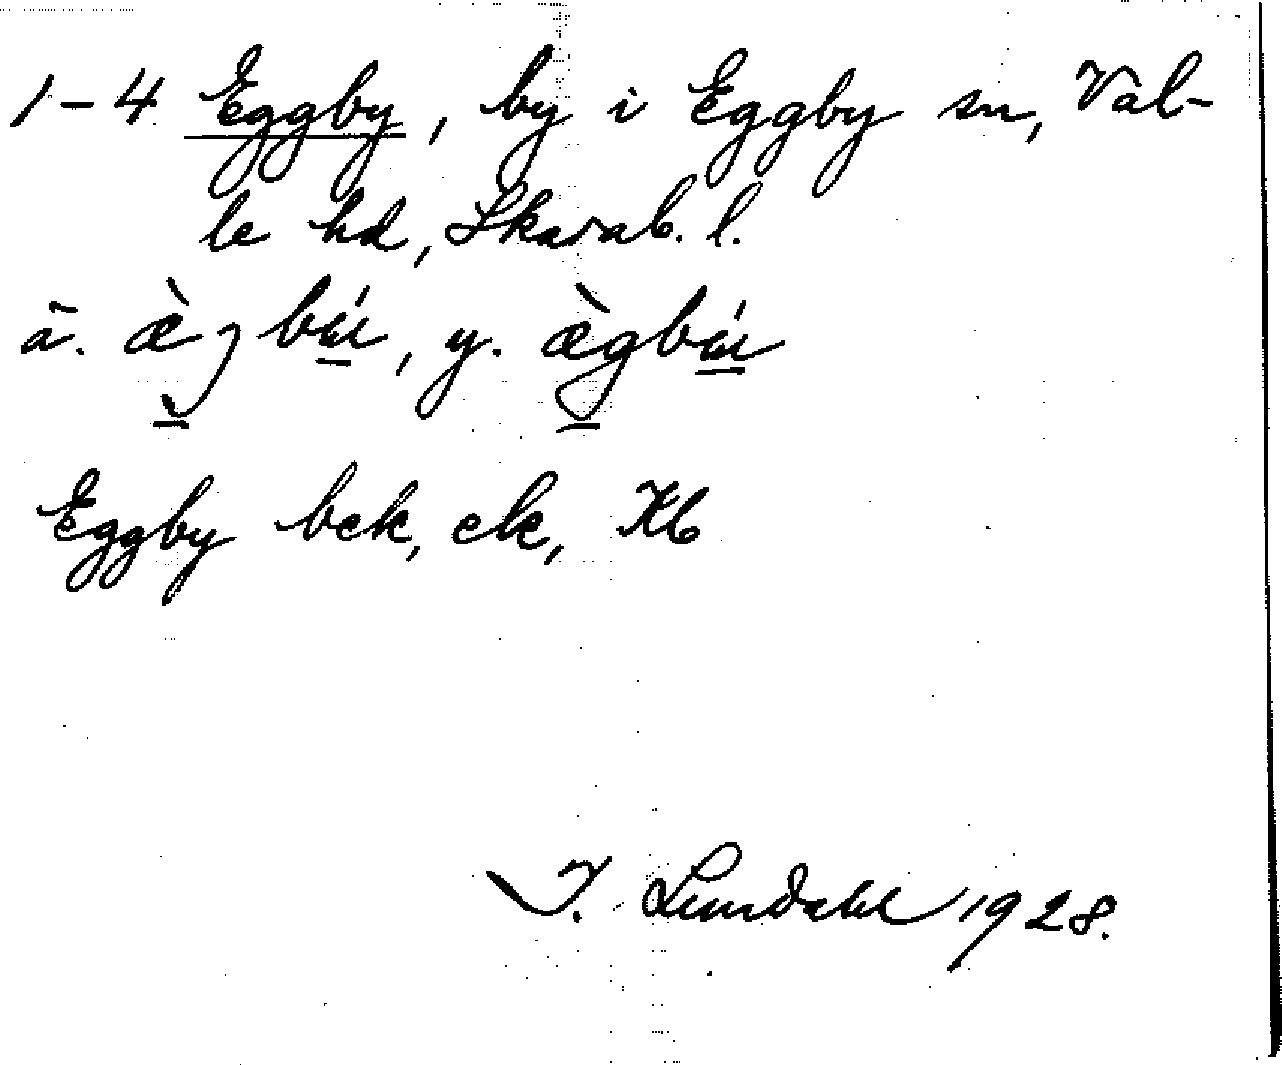 1-4 Eggby, by i Eggby sn, Val-
le hd, Skarab. l.
ä. y.
Eggby bek, ek, Kb
I. Lundahl 1928.